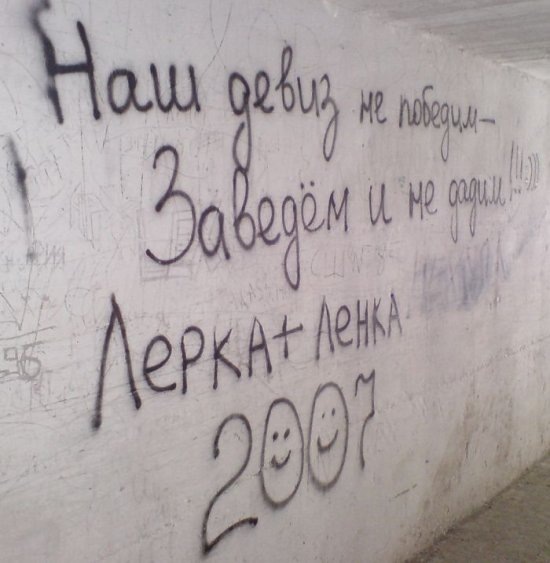 Наш девиз не победим-
Заведём и не дадим!!!:-)))
Лерка+Ленка
2007
96